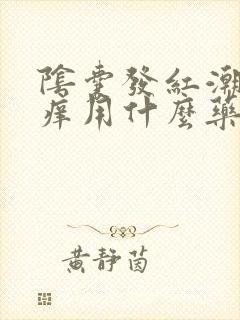 陰囊發紅潮
痒用什麼藥
黃靜茵